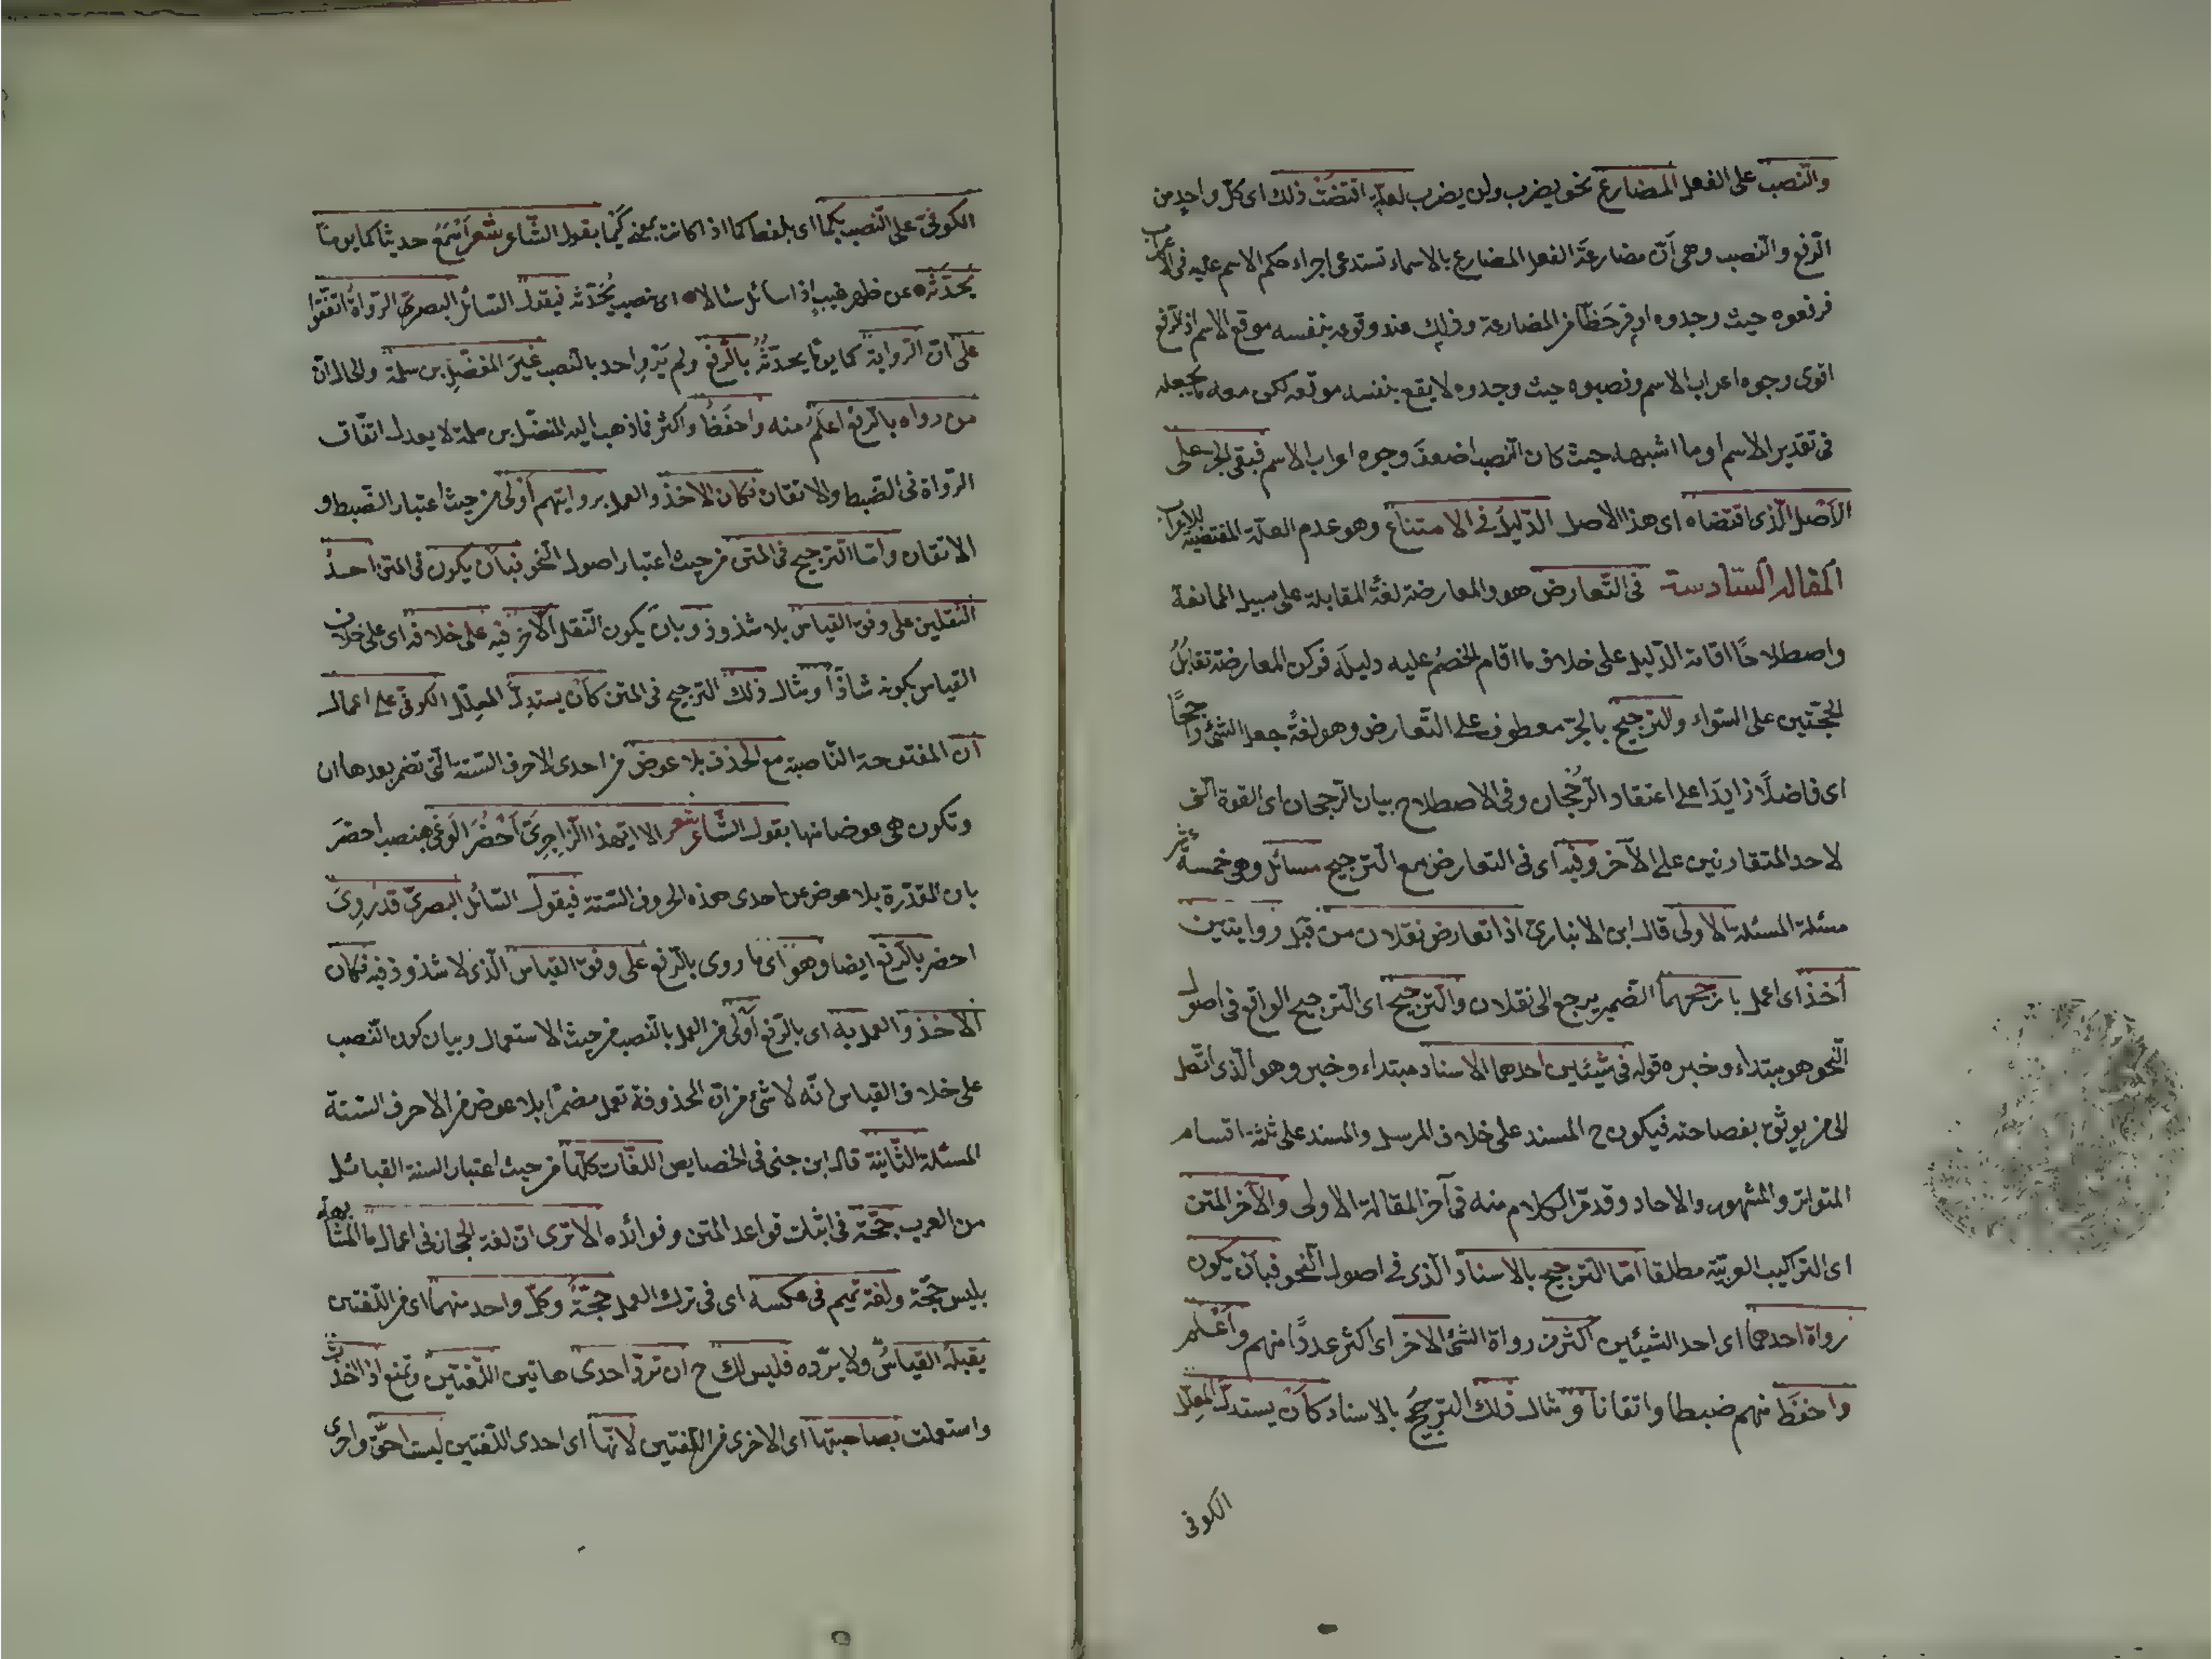 والنصب على الفعل المضارع نحو يضرب ولن يضرب لعلة اقتضت ذلك اى كل واحد من
الرفع والنصب وهى أن مضارعة الفعل المضارع بالاسماء تستدعى اجراء حكم الاسم عليه فى الاعراب
فرفعوه حيث وجدوه اوفر حظا من المضارعة وذلك عند وقوعه بنفسه موقع الاسم اذ الرفع
اقوى وجوه اعراب الاسم ونصبوه حيث وجدوه لا يقع بنفسه موقعه لكن معه ما يجعله
فى تقدير الاسم او ما اشبهه حيث كان النصب اضعف وجوه اعراب الاسم فبقى الجر على
الأصل الذى اقتضاه اى هذا الاصل الدليل فى الامتناع وهو عدم العلة المقتضية للاعراب
المقالة السادسة فى التعارض هو والمعارضة لغة المقابلة على سبيل الممانعة
واصطلاحا اقامة الدليل على خلاف ما اقام الخصم عليه دليله فركن المعارضة تقابل
الحجتين على السواء والترجيح بالجر معطوف على التعارض وهو لغة جعل الشئ راجحا
اى فاضلا زايدا على اعتقاد الرجحان وفى الاصطلاح بيان الرجحان اى القوة التى
لاحد المتقارنين على الآخر وفيه اى فى التعارض مع الترجيح مسائل وهو خمسة عشر
مسئلة المسئلة الاولى قال ابن الانبارى اذا تعارض نقلان من قبل روايتين
أخذ اى اعمل بارجحهما الضمير يرجع الى نقلان والترجيح اى الترجيح الواقع فى اصول
النحو هو مبتداء وخبره قوله فى شيئين احدهما الاسناد مبتداء وخبر وهو الذى اتصل
الى من يوثق بفصاحته فيكون ح المسند على خلاف المرسل والمسند على ثلثة اقسام
المتواتر والمشهور والاحاد وقد مر الكلام منه فى آخر المقالة الاولى والآخر المتن
اى التراكيب العربية مطلقا اما الترجيح بالاسناد الذى فى اصول النحو فبأن يكون
رواة احدهما اى احد الشيئين اكثر من رواة الشئ الاخر اى اكثر عددا منهم وأعلم
واحفظ منهم ضبطا واتقانا ومثال ذلك الترجيح بالاسناد كأن يستدل المعلل
الكوفى
الكوفى على النصب بكما اى بلفظ كما اذا كانت بمعنى كيما بقول الشاعر شعر اسمع حديثا كما يوما
يحدثه عن ظهر غيب اذا سائل سالا اى نصب يحدثه فيقول السائل البصرى الرواة اتفقوا
على ان الرواية كما يوما يحدثه بالرفع ولم يرو احد بالنصب غير المفضل بن سلمة والحال ان
من رواه بالرفع اعلم منه واحفظ واكثر فما ذهب اليه المفضل بن سلمة لا يعدل اتفاق
الرواة فى الضبط والاتقان فكان الاخذ والعمل بروايتهم أولى من حيث اعتبار الضبط و
الاتقان واما الترجيح فى المتن من حيث اعتبار اصول النحو فبأن يكون فى المتن احد
النقلين على وفق القياس بلا شذوذ وبان يكون النقل الآخر فيه على خلافه اى على خلاف
القياس بكونه شاذا ومثال ذلك الترجيح فى المتن كأن يستدل المعلل الكوفى على اعمال
أن المفتوحة الناصبة مع الحذف بلا عوض من احدى الاحرف الستة التى تضمر بعدها ان
وتكون هى عوضا منها بقول الشاعر شعر الا ايهذا الزاجرى أحضر الوغى بنصب احضر
بان المقدرة بلا عوض عن احدى هذه الحروف الستة فيقول السائل البصرى قد روى
احضر بالرفع ايضا وهو اى ما روى بالرفع على وفق القياس الذى لا شذوذ فيه فكان
الأخذ والعمل به اى بالرفع أولى من العمل بالنصب من حيث الاستعمال وبيان كون النصب
على خلاف القياس انه لا شئ من ان المحذوفة تعمل مضمرا بلا عوض من الاحرف الستة
المسئلة الثانية قال ابن جنى فى الخصايص اللغات كلها من حيث اعتبار السنة القبائل
من العرب حجة فى اثبات قواعد المتن وفوائده الا ترى ان لغة الحجاز فى اعمال ما المشابهة
بليس حجة ولغة تميم فى عكسه اى فى ترك العمل حجة وكل واحد منهما اى من اللغتين
يقبله القياس ولا يرده فليس لك ح ان ترد احدى هاتين اللغتين وتمنع اذا اخذت
واستعملت بصاحبتها اى الاخرى من اللغتين لانها اى احدى اللغتين ليست احق واحرى